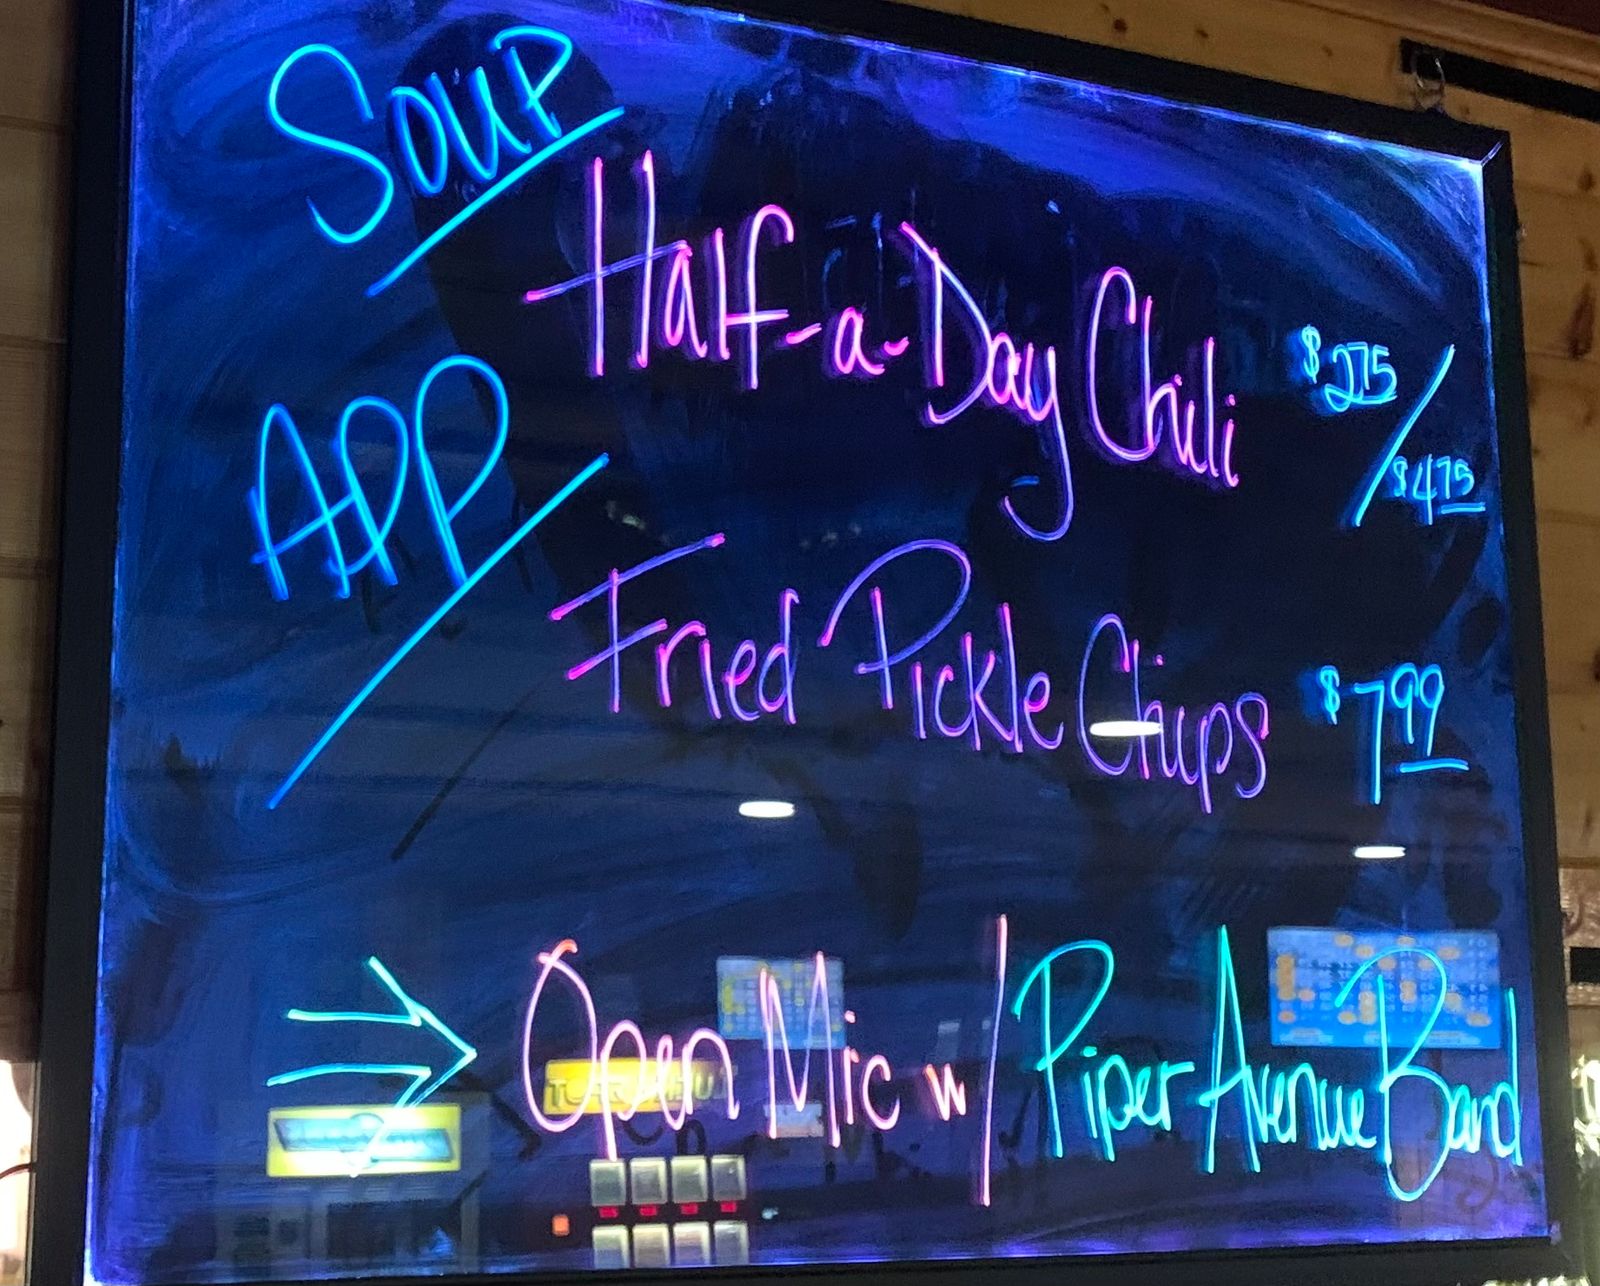 Soup
Half-a-Day Chili $2.75/$4.75
APP
Fried Pickle Chips $7.99
Open Mic w/ Piper Avenue Band